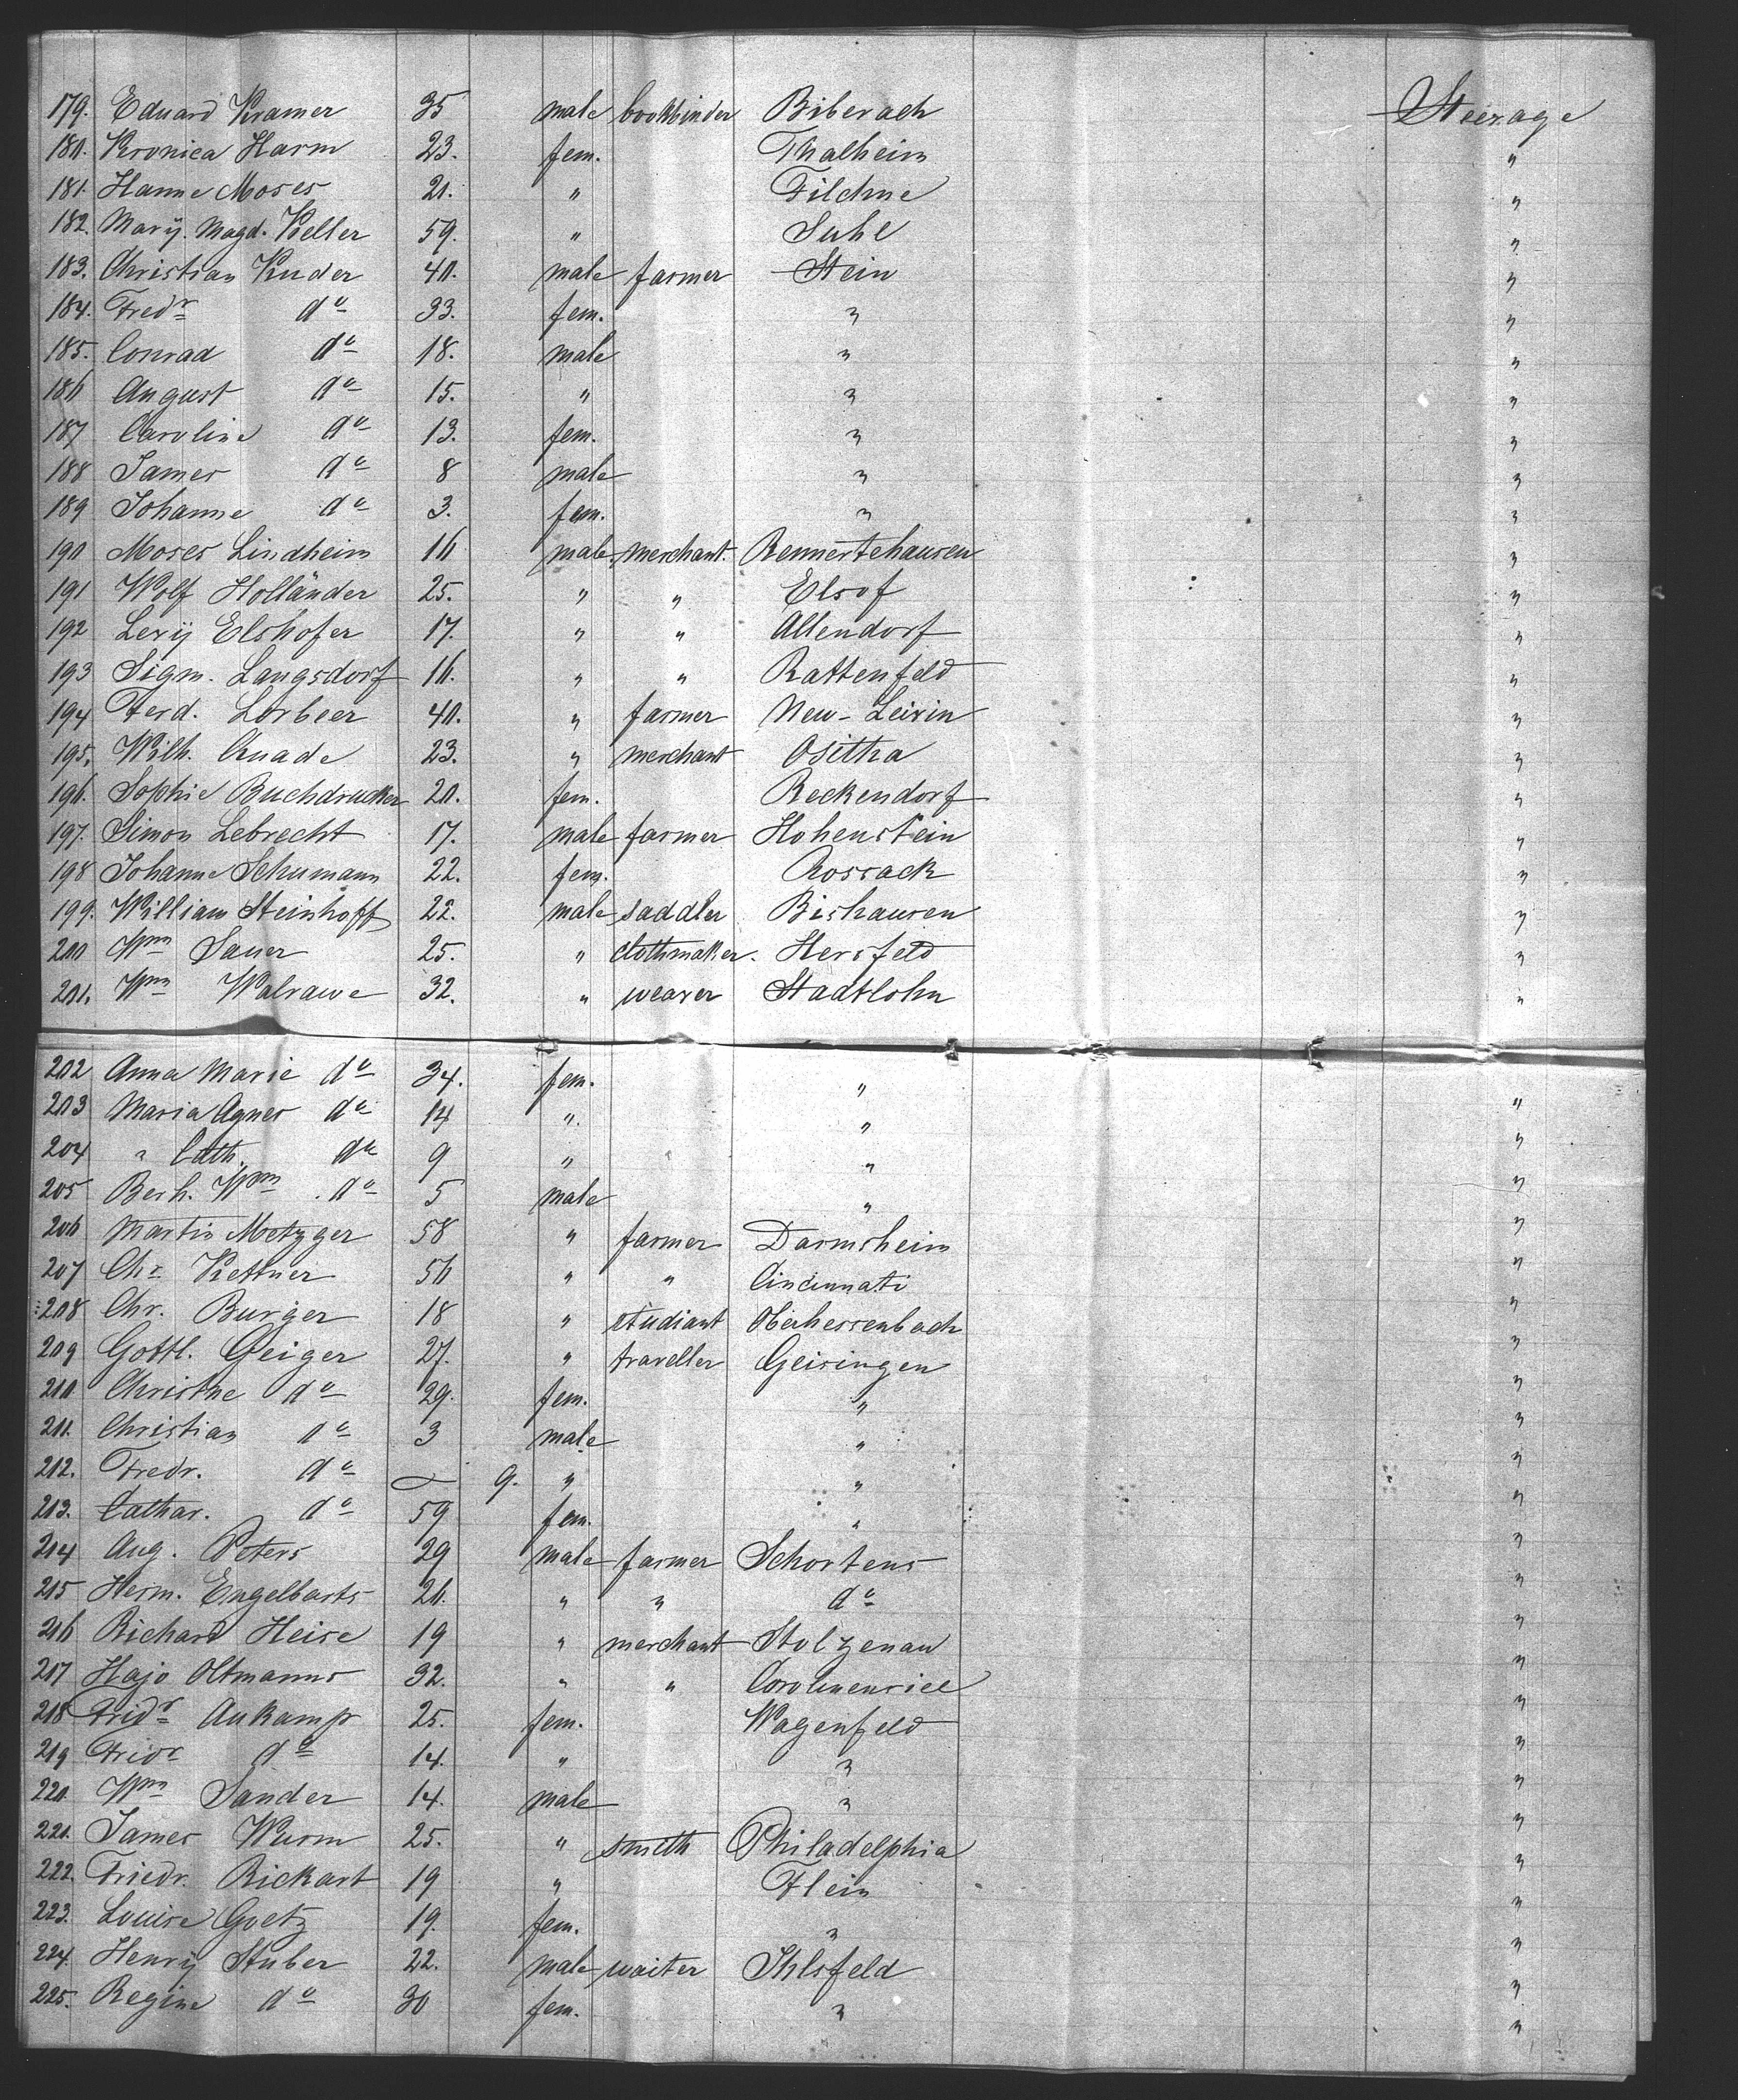 179. Eduard Kramer 35 male bookbinder Biberach Steerage
180. Veronica Harm 23. fem. Thalheim "
181. Hanne Moses 20. " Filehne "
182. Mary. Magd. Keller 59. " Suhl "
183. Christian Kuder 40. male farmer Stein "
184. Fredr do 33. fem. " "
185. Conrad do 18. male " "
186 August do 15. " " "
187 Caroline do 13. fem. " "
188 James do 8 male " "
189 Johanne do 3. fem. " "
190 Moses Lindheim 16 male merchant. Rennertehausen "
191 Wolf Holländer 25. " " Elsof "
192 Levy Elshofer 17. " " Allendorf "
193 Sigm. Langsdorf 16. " " Rattenfeld "
194 Ferd. Lorbeer 40. " farmer New-Leivin "
195. Wilh. Quade 23. " merchant Ositha "
196. Sophie Buchdrucker 20. fem. Reckendorf "
197. Simon Lebrecht 17. male farmer Hohenstein "
198 Johanne Schumann 22. fem. Rossack "
199. William Steinhoff 22. male saddler Bishausen "
200 Wm Sauer 25. " clothmaker. Hersfeld "
201. Wm Walrawe 32. " weaver Stadtlohn "
202 Anna Marie do 34. fem. " "
203 Maria Agnes do 14 " " "
204 " Cath. do 9 " " "
205 Berh. Wm do 5 male " "
206 Martin Metzger 58 " farmer Darmsheim "
207 Chr Kettner 56 " " Cincinnati "
208 Chr. Burger 18 " studiant Oberhessenbach "
209 Gottl. Geiger 27. " traveller Geisingen "
210 Christne do 29. fem. " "
211. Christian do 3 male " "
212. Fredr. do — 9. " " "
213. Cathar. do 59 fem. " "
214 Aug. Peters 29 male farmer Schortens "
215 Herm. Engelbarts 26. " " do "
216 Richard Heise 19 " merchant Stolzenau "
217 Hajo Oltmanns 32. " " Carolinensiel "
218 Fridr Aukamp 25. fem. Wagenfeld "
219 Fridr do 14. " " "
220. Wm Sander 14. male " "
221. James Wurm 25. " smith Philadelphia "
222. Friedr. Rickart 19 " Flein "
223. Louise Goetz 19. fem. " "
224. Henry Stuber 22. male waiter Ihlsfeld "
225. Regine do 30 fem. " "